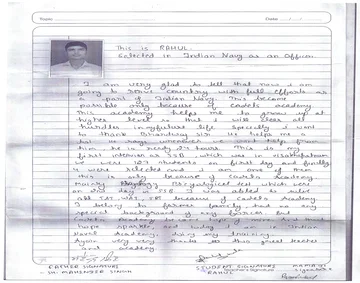 This is RAHUL.
Selected in Indian Navy as an Officer.
I am very glad to tell that now I am
going to serve country with full efforts as
a part of Indian Navy. This became
possible only because of cadets academy
This academy helps me to grow up at
higher level so that I will clear all
hurdles in my future life. Specially I want
to thank sir. He helps me a
lot in ways whenever we want help from
him. He is ready 24 hours. This is my
first interview as SSB, which was in Visakhapatnam
we were 107 students on first day and finally
4 were selected and I am one of them
This is only because of Cadets Academy
Mainly Psycological test which were
on IInd day in SSB I was added to solve
all TAT, WAT, SRT because of Cadets Academy
I belong to farmer family, I had no any
special background of any forces but
Cadets Academy
hope and today I am in Indian
Naval Academy, doing my training.
Again very very thanks to this great teacher
and academy
FATHER SIGNATURE
SH. MAHENDER SINGH
STUDENT SIGNATURE
RAHUL
MAMA JI
SIGNATURE